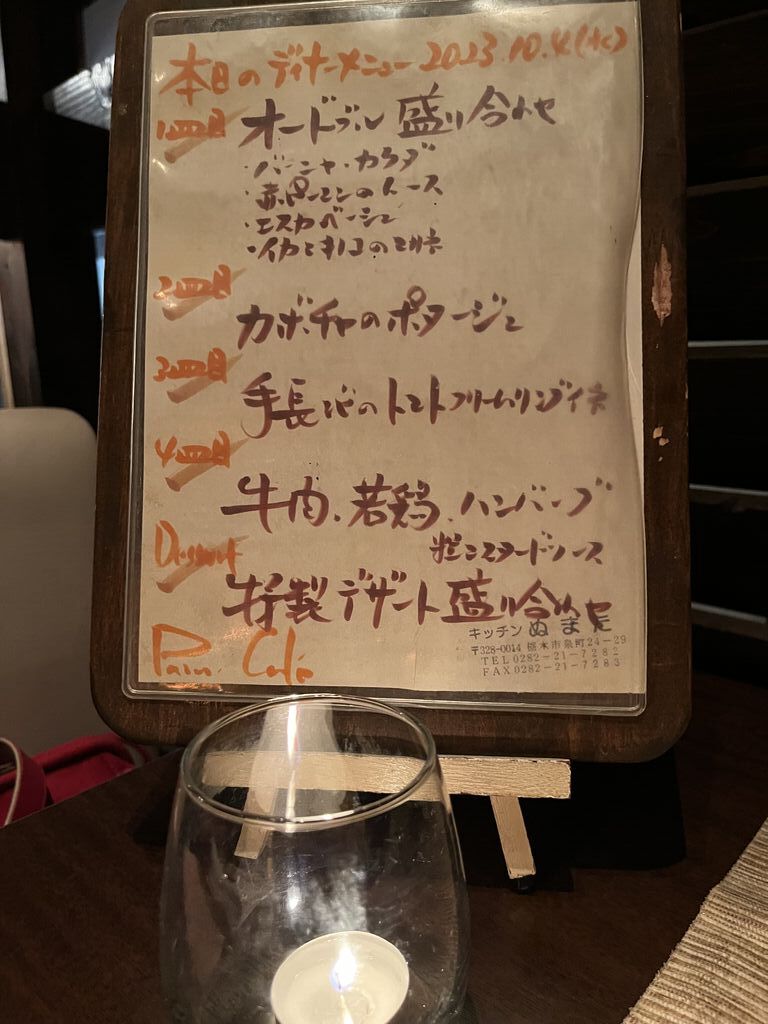 本日のディナーメニュー 2023.10.4(水)
1皿目 オードブル 盛り合わせ
・バーニャ・カウダ
・赤ピーマンのムース
・エスカベーシュ
・イカときのこのマリネ
2皿目
カボチャのポタージュ
3皿目
手長エビのトマトクリームリングイネ
4皿目
牛肉、若鶏、ハンバーグ
粒マスタードソース
Dessert
特製デザート盛り合わせ
キッチン ぬまた
〒328-0014 栃木市泉町24-29
TEL0282-21-7282
FAX0282-21-7283
Pain, Café